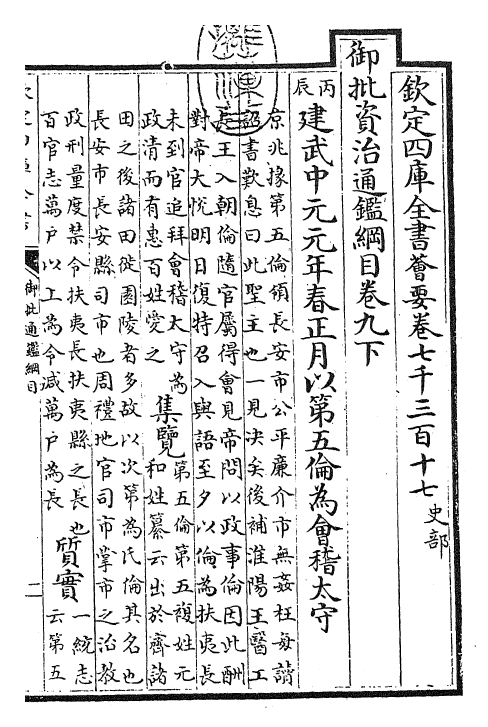 欽定四庫全書薈要卷七千三百十七 史部
御批資治通鑑綱目卷九下
丙辰 建武中元元年春正月以第五倫為會稽太守
京兆掾第五倫領長安市公平廉介市無姦枉每讀
詔書歎息曰此聖主也一見決矣後補淮陽王醫工
長王入朝倫隨官屬得會見帝問以政事倫因此酬
對帝大悅明日復特召入與語至夕以倫為扶夷長
未到官追拜會稽太守為
政清而有惠百姓愛之
集覽
第五倫第五複姓元
和姓纂云出於齊諸
田之後諸田徙園陵者多故以次第為氏倫其名也
長安市長安縣司市也周禮地官司市掌市之治教
政刑量度禁令扶夷長扶夷縣之長也
百官志萬戶以上為令減萬戶為長
質實
一統志
云第五
御批通鑑綱目